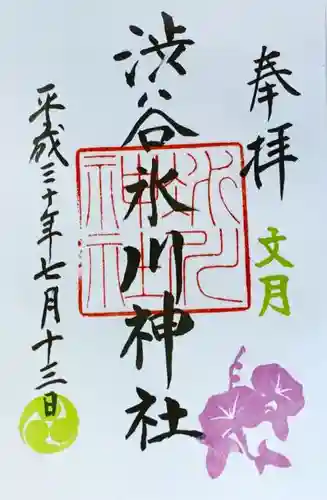 奉拝
文月
渋谷氷川神社
氷川神社
平成三十年七月十三日